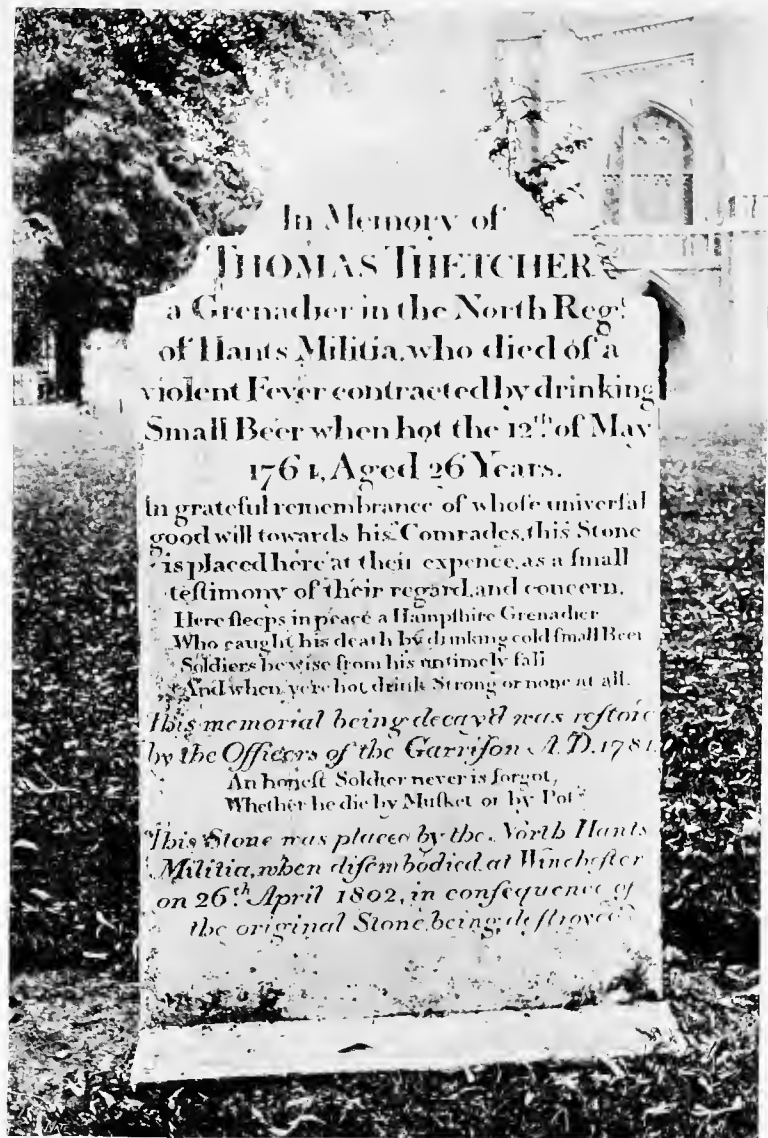 In Memory of
THOMAS THETCHER
a Grenadier in the North Regt.
of Hants Militia, who died of a
violent Fever contracted by drinking
Small Beer when hot the 12th. of May
1764, Aged 26 Years.
In grateful remembrance of whoſe univerſal
good will towards his Comrades, this Stone
is placed here at their expence, as a ſmall
teſtimony of their regard and concern.
Here ſleeps in peace a Hampſhire Grenadier
Who caught his death by drinking cold ſmall Beer
Soldiers be wiſe from his untimely fall
And when ye're hot drink Strong or none at all.
This memorial being decay'd was reſtor'd
by the Officers of the Garriſon A.D. 1781.
An honeſt Soldier never is forgot,
Whether he die by Muſket or by Pot.
This Stone was placed by the North Hants
Militia, when diſembodied at Wincheſter
on 26th. April 1802, in conſequence of
the original Stone being deſtroyed